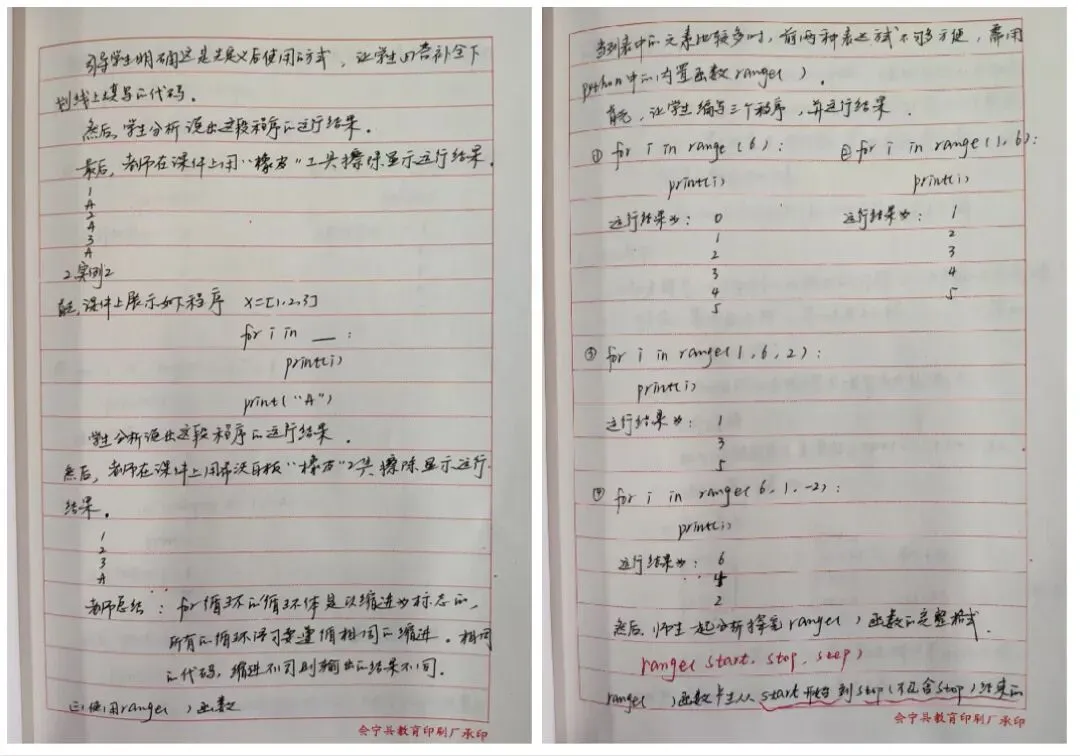 引导学生明确这是先定义后使用的方式，让学生回答补全下
划线上填写的代码。
然后，学生分析说出这段程序的运行结果。
最后，老师在课件上用“橡皮”工具擦除显示运行结果。
1
A
2
A
3
A
2.实例2
首先，课件上展示如下程序 x=[1,2,3]
for i in __ :
print(i)
print("A")
学生分析说出这段程序的运行结果。
然后，老师在课件上用希沃白板“橡皮”工具擦除显示运行
结果。
1
2
3
A
老师总结：for循环的循环体是以缩进为标志的，
所有的循环语句要遵循相同的缩进。相同
的代码，缩进不同则输出的结果不同。
(二)使用range( )函数
会宁县教育印刷厂承印
当列表中的元素比较多时，前两种表达方式不够方便，需用
python中的内置函数range( )。
首先，让学生编写三个程序，并运行结果。
① for i in range(6): ② for i in range(1,6):
print(i) print(i)
运行结果为： 0 运行结果为： 1
1 2
2 3
3 4
4 5
5
③ for i in range(1,6,2):
print(i)
运行结果为： 1
3
5
④ for i in range(6,1,-2):
print(i)
运行结果为： 6
4
2
然后，师生一起分析探究range( )函数的完整格式.
range(start, stop, step)
range( )函数产生从start开始到stop(不包含stop)结束的
会宁县教育印刷厂承印